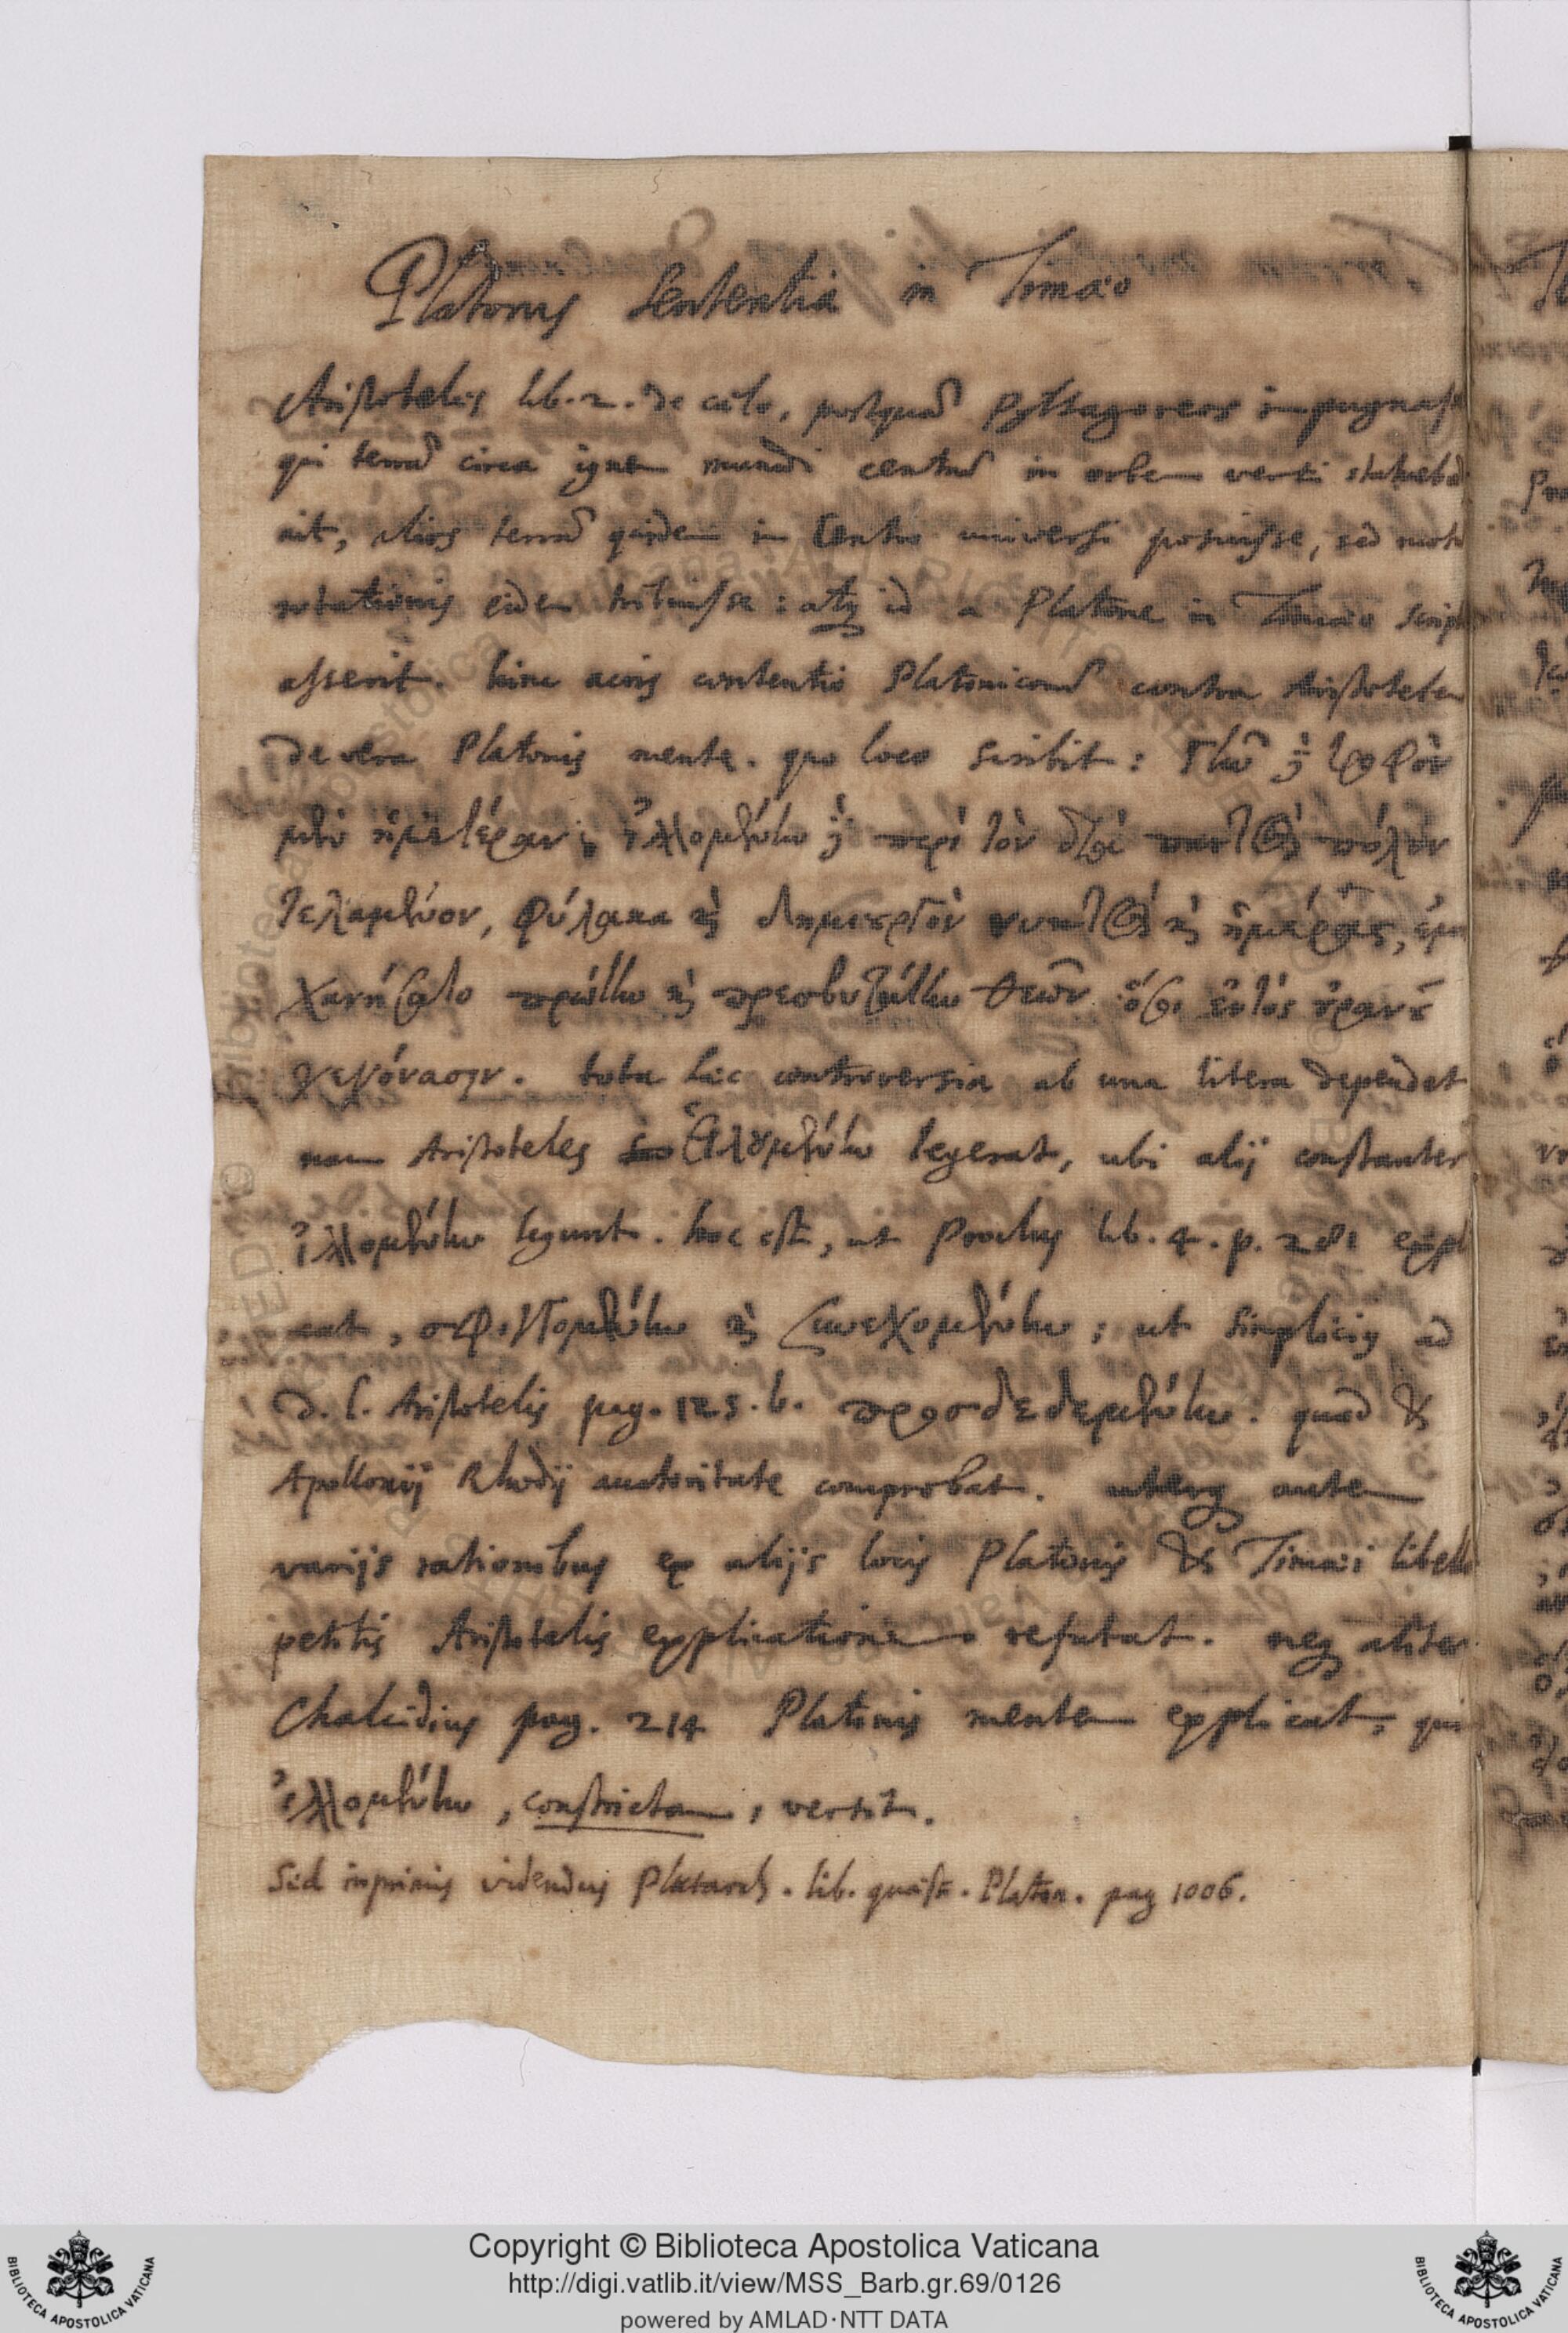 Platonis Sententia in Timæo
Aristoteles lib. 2. de cælo, postquã Pythagoreos impugnass
qui terrã circa ignem mundi centrũ in orbem verti statuebã
ait, alios terrã quidem in centro universi posuisse, sed mot
rotationis eidem tribuisse: atq; id a Platone in Timæo scrip
asserit. hinc acris contentio Platonicorũ contra Aristotelem
de vera Platonis mente. quo loco scribit: γλῶ ἢ τροφὸν
μὲν ἡμετέραν, ἰλλομένην ἢ περὶ τὸν διὰ παντὸς πόλον
τεταμένον, φύλακα καὶ δημιουργὸν νυκτός καὶ ἡμέρας, ἐμη
χανήσατο πρώτην καὶ πρεσβυτάτην θεῶν ὅσοι ἐντὸς οὐρανοῦ
γεγόνασιν. tota hæc controversia ab una litera dependet
nam Aristoteles εἱλουμένην legerat, ubi alij constanter
ἰλλομένην legunt. hoc est, ut Proclus lib. 4. p. 281 expl
cat, σφιγγομένην καὶ συνεχομένην; ut Simplicius ad
d. l. Aristotelis pag. 125. b. προσδεδεμένην. quod &
Apollonij Rhodij auctoritate comprobat. uterq; autem
varijs rationibus ex alijs locis Platonis & Timæi libell
petitis Aristotelis explicationem refutat. neq; aliter
Chalcidius pag. 214 Platonis mentem explicat, qui
ἰλλομένην, constrictam, vertit.
Sed inprimis videndus Plutarch. lib. quæst. Platon. pag 1006.
Copyright © Biblioteca Apostolica Vaticana
http://digi.vatlib.it/view/MSS_Barb.gr.69/0126
powered by AMLAD·NTT DATA
BIBLIOTECA APOSTOLICA VATICANA
BIBLIOTECA APOSTOLICA VATICANA